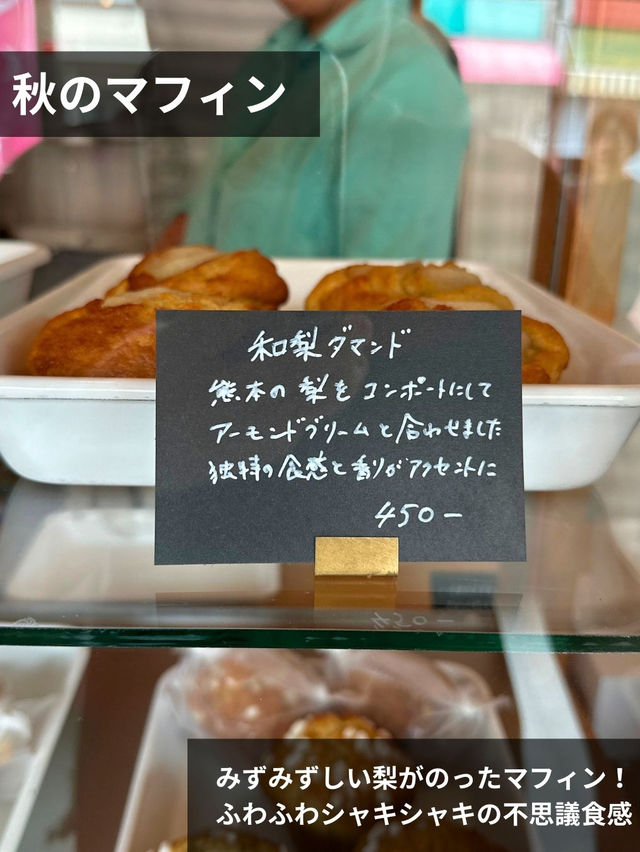 秋のマフィン
和梨ダマンド
熊本の梨をコンポートにして
アーモンドクリームと合わせました
独特の食感と香りがアクセントに
450-
みずみずしい梨がのったマフィン！
ふわふわシャキシャキの不思議食感